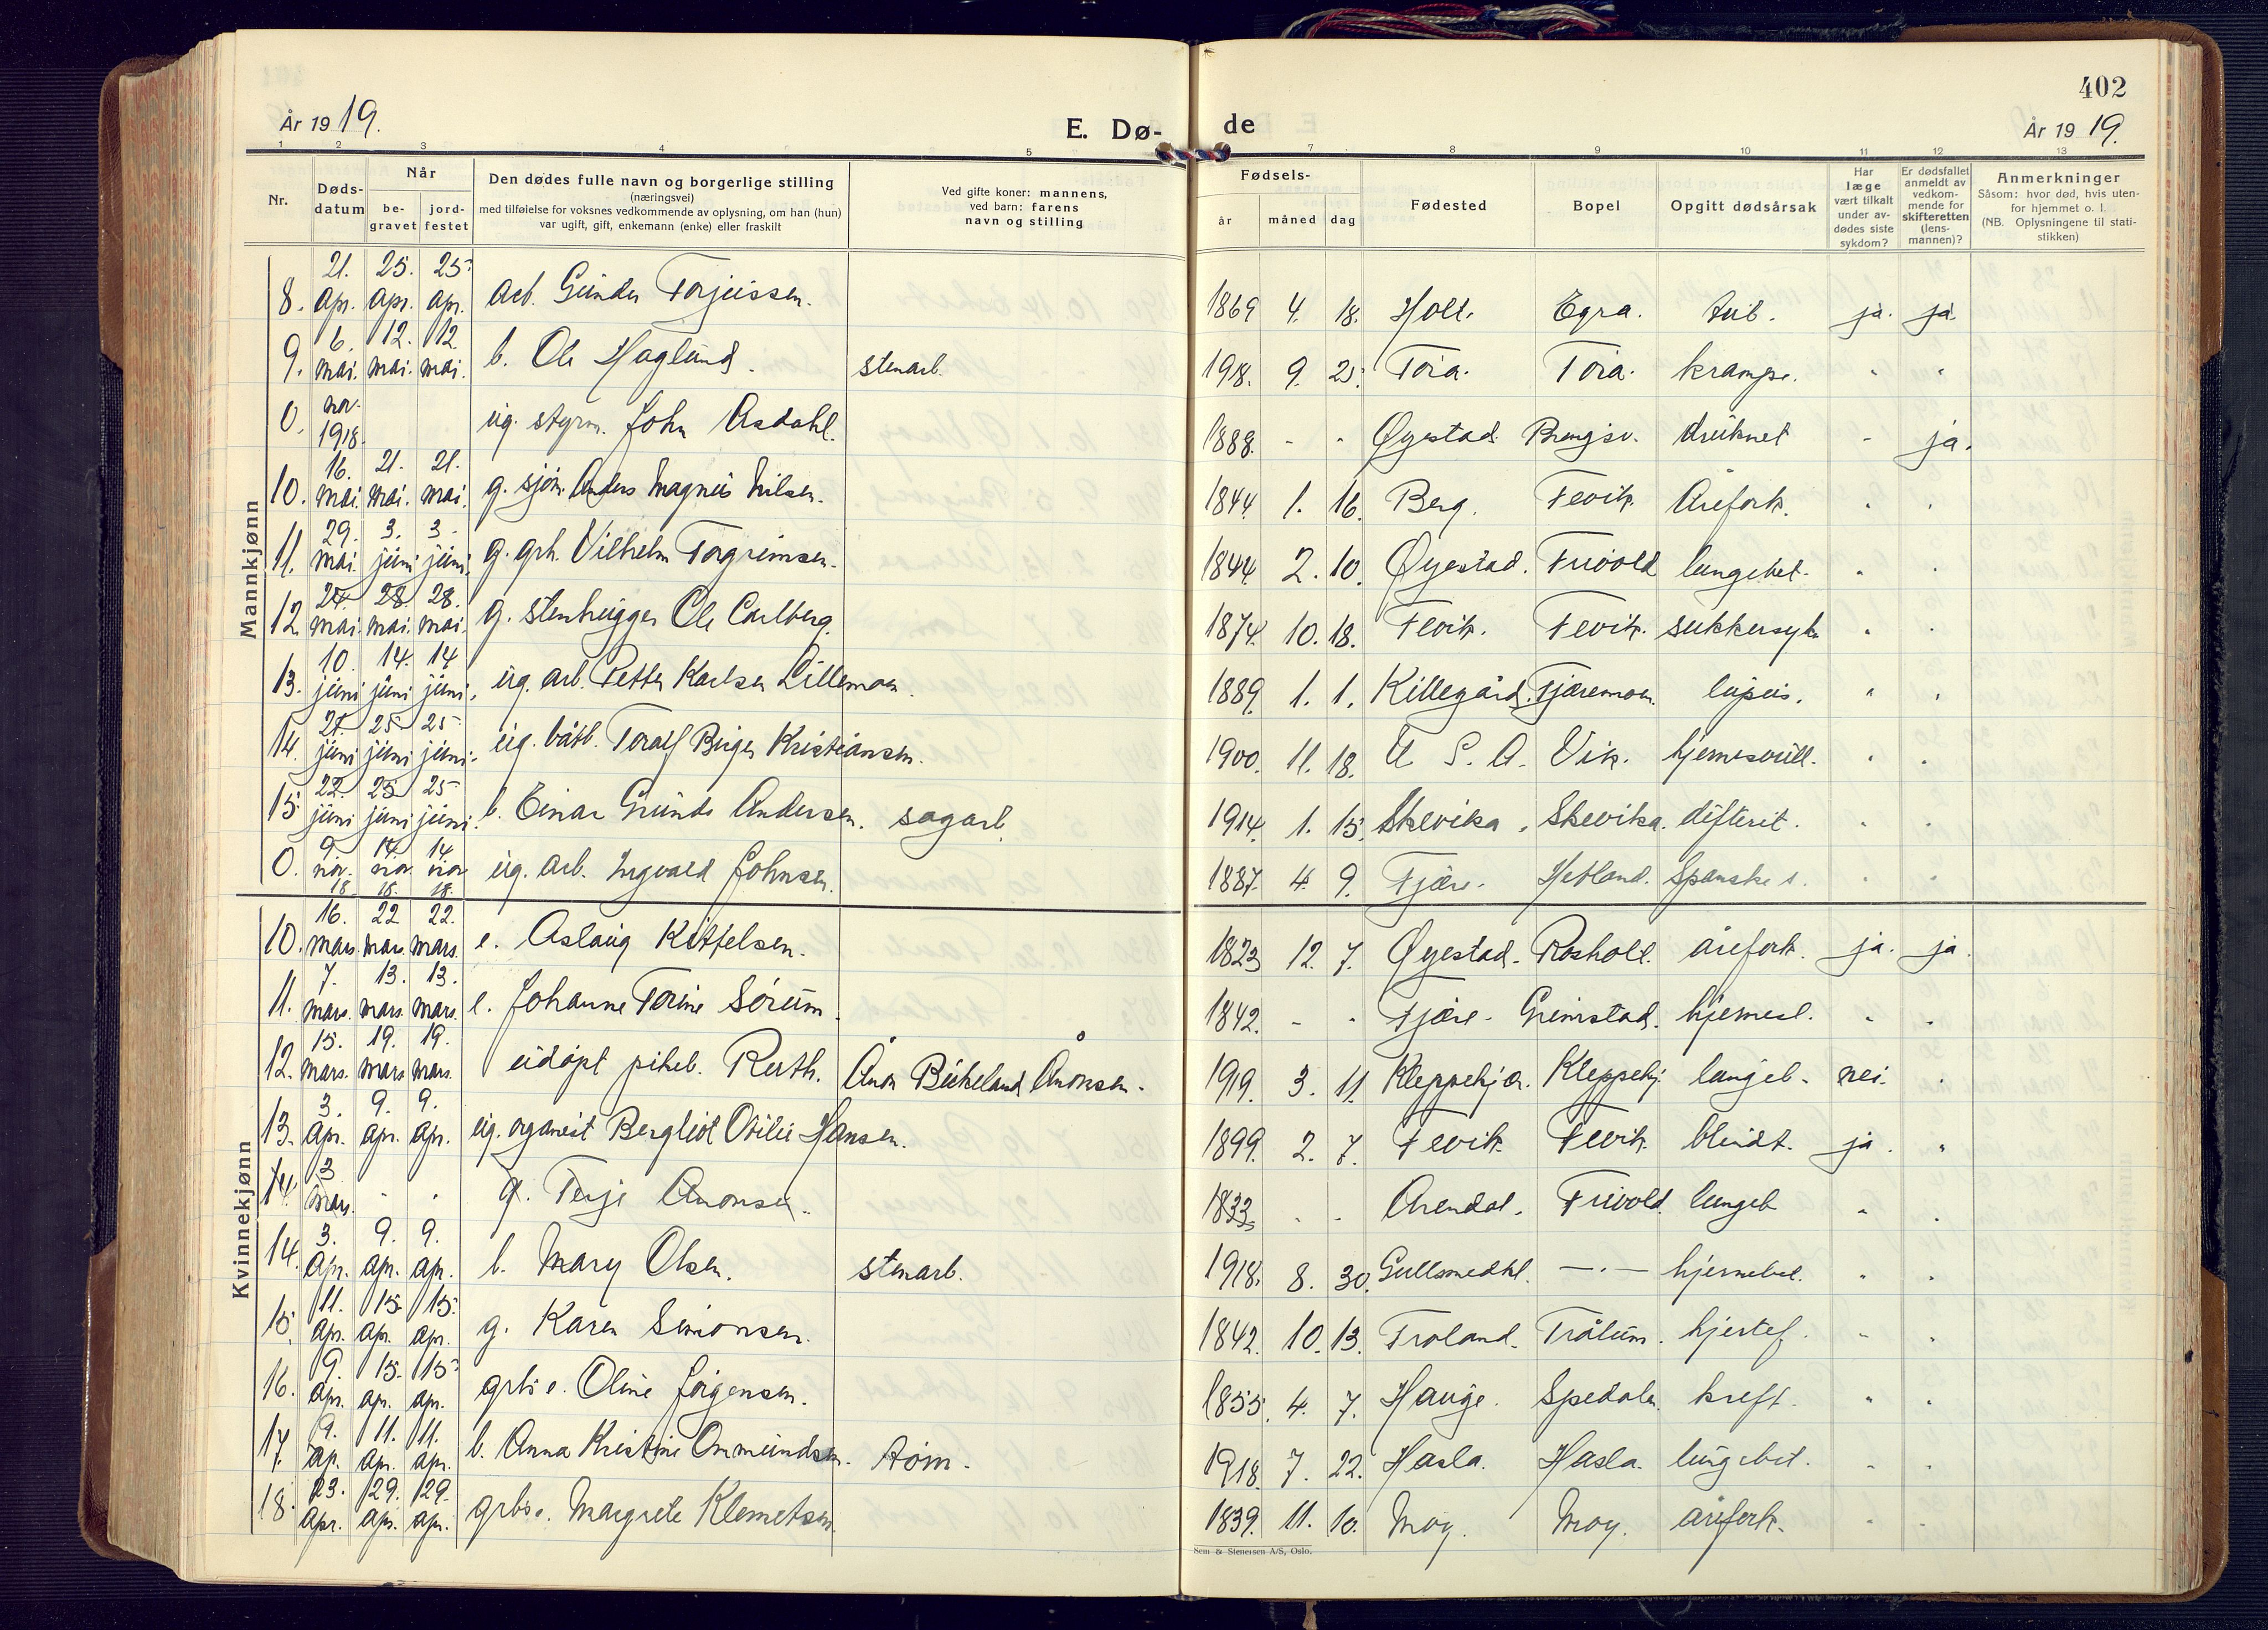 402
År 1919.
E. Dø-
de
År 1919.
1 2 3 4 5 7 8 9 10 11 12 13
Nr.
Døds-
datum
Når
be-
gravet
jord-
festet
Den dødes fulle navn og borgerlige stilling
(næringsvei)
med tilføielse for voksnes vedkommende av oplysning, om han (hun)
var ugift, gift, enkemann (enke) eller fraskilt
Ved gifte koner: mannens,
ved barn: farens
navn og stilling
Fødsels-
år måned dag
Fødested
Bopel
Opgitt dødsårsak
Har
læge
vært tilkalt
under av-
dødes siste
sykdom?
Er dødsfallet
anmeldt av
vedkom-
mende for
skifteretten
(lens-
mannen)?
Anmerkninger
Såsom: hvor død, hvis uten-
for hjemmet o. l.
(NB. Oplysningene til stati-
stikken)
Mannkjønn
8. 21. apr. 25. apr. 25. apr. arb. Gunder Torjussen. 1869 4. 18. Holt. Egra. tub. ja. ja.
9. 6. mai. 12. mai. 12. mai. b. Ole Haglund. stenarb. 1918. 9. 25. Tøra. Tøra. krampe. " "
0. nov. 1918. ug. styrm. John Asdahl. 1888. - - Øyestad. druknet - ja.
10. 16. mai. 21. mai. 21. mai. g. sjøm. Anders Magnus Nilsen. 1844. 1. 16. Berg. Fevik. Årefork. " "
11. 29. mai. 3. juni 3. juni. g. grh. Vilhelm Torgrimsen. 1844. 2. 10. Øyestad. Frivold lungebet. " "
12. 24. mai. 28. mai. 28. mai. g. stenhugger Ole Carlberg. 1874. 10. 18. Fevik. Fevik. sukkersyke " "
13. 10. juni 14. juni 14 juni. ug. arb. Petter Karlsen Lillemoen. 1889. 1. 1. Killegård. Fjæremoen. lupus. " "
14. 21. juni 25 juni 25 juni. ug. båtb. Toralf Birger Kristiansen. 1900. 11. 18. U. S. A. Vik. hjernesvull. " "
15 22. juni 25 juni 25 juni. b. Einar Gunda Andersen. sagarb. 1914. 1. 15. Skevika. Skevika. difterit. " "
0. 9 nov. 18 14 nov. 18. 14 nov 18. ug. arb. Ingvald Johnsen. 1887. 4. 9. Fjære. Hetland. Spanske s. " "
Kvinnekjønn
10. 16. mars. 22 mars. 22. mars. e. Aslaug Kittelsen. 1823 12. 7. Øyestad. Rosholt. årefork. ja. ja.
11. 7. mars. 13. mars. 13. mars. e. Johanne Torine Sørum. 1842. - - Fjære. Grimstad. hjernesl. " "
12. 15. mars. 19. mars 19. mars. udøpt pikeb. Ruth. Ånon Birkeland Ånonsen. 1919. 3. 11. Kleppekjær. Kleppekj. lungeb. nei. "
13. 3. apr. 9. apr. 9. apr. ug. organist Bergliot Otilie Hansen. 1899. 2. 7. Fevik. Fevik. blindt. ja. "
14. 3 mars. " " g. Terje Anonsen. 1833. - - Arendal. Frivold. lungeb " "
14. 3. apr. 9. apr. 9. apr. b. Mary Olsen. stenarb. 1918. 8. 30. Gullsmedhl. —.— hjernebet. " "
15. 11. apr. 15. apr. 15. apr. g. Karen Simonsen. 1842. 10. 13. Froland. Trålum. hjertef. " "
16. 9. apr. 15. apr. 15. apr. grbs e. Oline Jørgensen. 1855. 4. 7. Hauge. Spedalen. kreft. " "
17. 9. ap. 11. apr. 11. apr. b. Anna Kristine Ommundsen. tøm. 1918. 7. 22. Hasla. Hasla. lungebet. " "
18. 23. apr. 29. apr. 29. apr. grbs e. Margrete Klemetsen. 1839. 11. 10. Moy. Moy. årefork. " "
Sem & Stenersen A/S, Oslo.